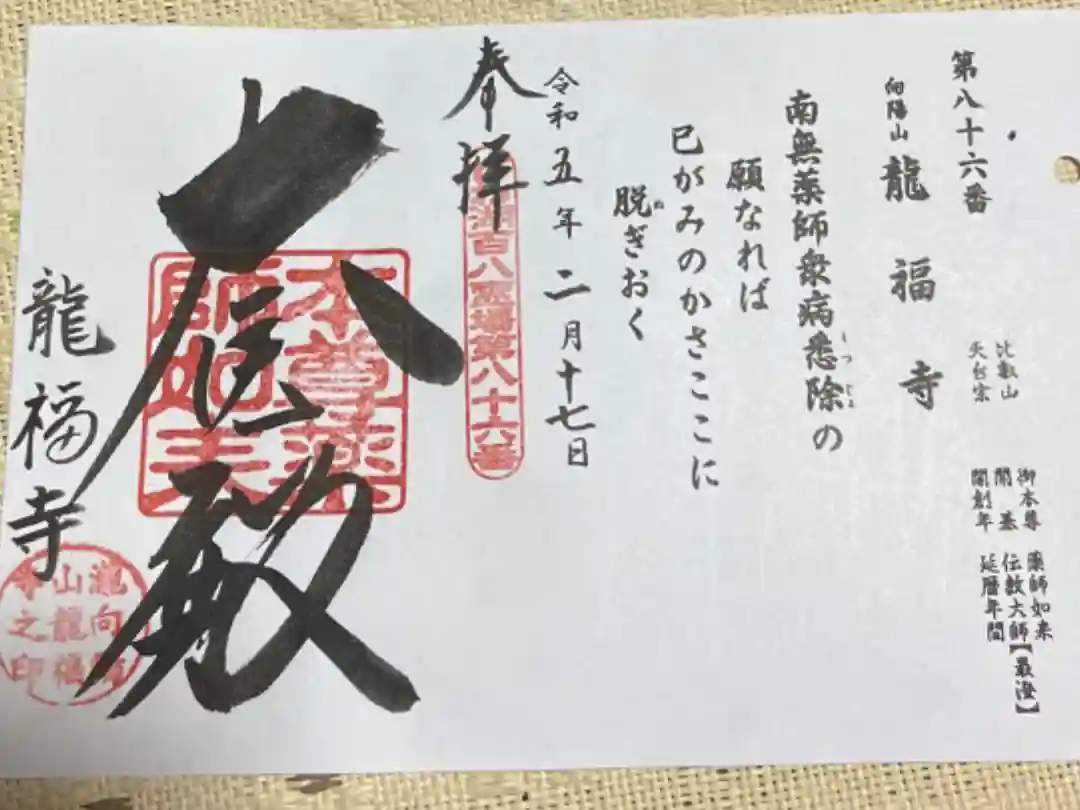 第八十六番
向陽山 龍福寺
比叡山
天台宗
御本尊 薬師如来
開基 伝教大師【最澄】
開創年 延暦年間
南無薬師衆病悉除の
しつじょ
願なれば
巳がみのかさここに
脱ぎおく
ぬ
令和五年二月十七日
奉拝
湖百八霊場第八十六番
大医殿
本尊薬
師如来
龍福寺
山龍福
寺之印